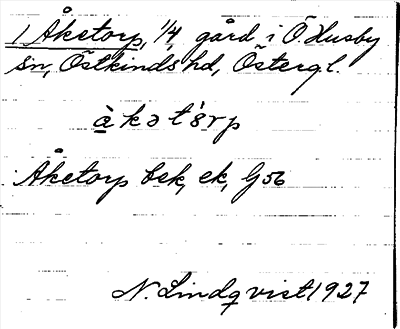 1 Åketorp, 1/4 gård i Ö. Husby
sn, Östkinds hd, Östergl.
àkət'ɵrp
Åketorp bek, ek, G 56
N. Lindqvist 1927